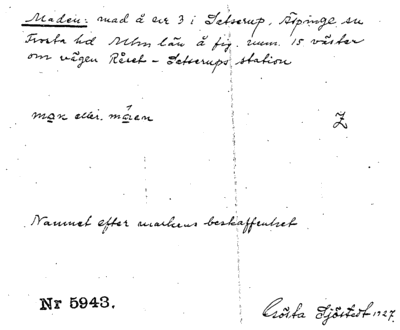 Maden: mad å nr 3 i Setserup, Äspinge sn
Frosta hd Mlm län å fig. num. 15 väster
om vägen Råset - Setserups station
man eller måen
Z
Namnet efter markens beskaffenhet
Nr 5943.
Gösta Sjöstedt 1927.